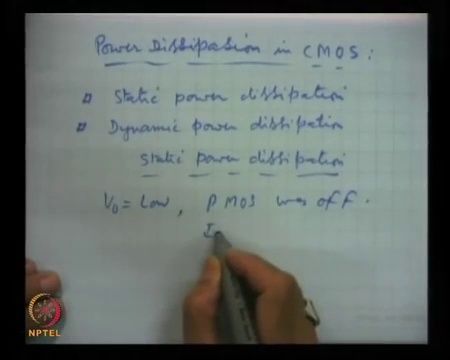 Power Dissipation in CMOS:
Static power dissipation
Dynamic power dissipation
static power dissipation
V0 = Low, PMOS was off.
I
NPTEL